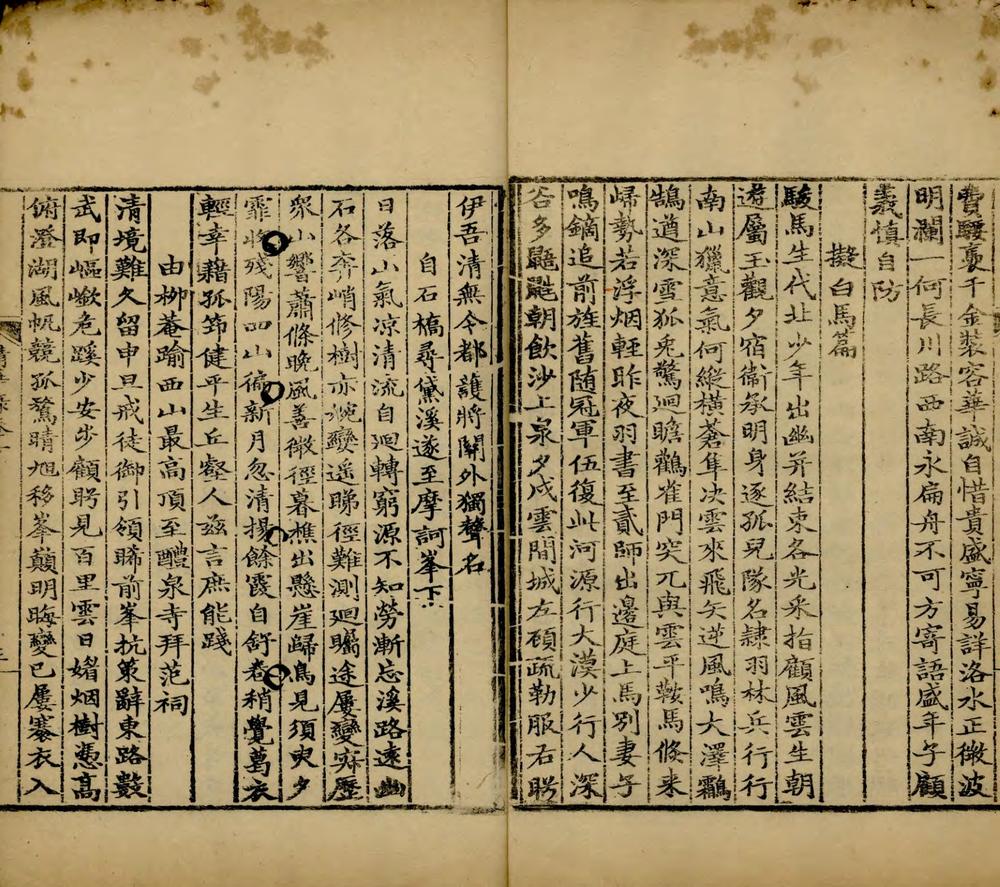 費騕褭千金裝容華誠自惜貴盛寧易詳洛水正微波
明瀾一何長川路西南永扁舟不可方寄語盛年子顧
義慎自防
擬白馬篇
駿馬生代北少年出幽并結束各光采指顧風雲生朝
遊屬玉觀夕宿衛承明身逐孤兒隊名隸羽林兵行行
南山獵意氣何縱橫蒼隼決雲來飛矢逆風鳴大澤霜
鵠遵深雪狐兎驚迴瞻鸛雀門突兀與雲平鞍馬倏来
歸勢若浮烟輕昨夜羽書至貳師出邊庭上馬別妻子
鳴鏑追前旌舊随冠軍伍復此河源行大漠少行人深
谷多鼯鼪朝飲沙上泉夕戍雲間城左顧疏勒服右盻
伊吾清無令都護將關外獨聲名
自石橋尋黛溪遂至摩訶峯下
日落山氣凉清流自迴轉窮源不知勞漸忘溪路遠幽
石各奔峭修樹亦婉孌遥睇徑難測迴矚途屢變寂歷
衆山響蕭條晚風善微徑暮樵出懸崖歸鳥見須臾夕
霏收殘陽四山徧新月忽清揚餘霞自舒卷稍覺葛衣
輕幸藉孤筇健平生丘壑人兹言庶能踐
由柳菴踰西山最高頂至醴泉寺拜范祠
清境難久留申旦戒徒御引領睇前峯抗策辭東路數
武即嶇嶔危蹊少安步顧盻見百里雲日媚烟樹憑高
俯澄湖風帆競孤騖晴旭移峯巔明晦變已屢褰衣入